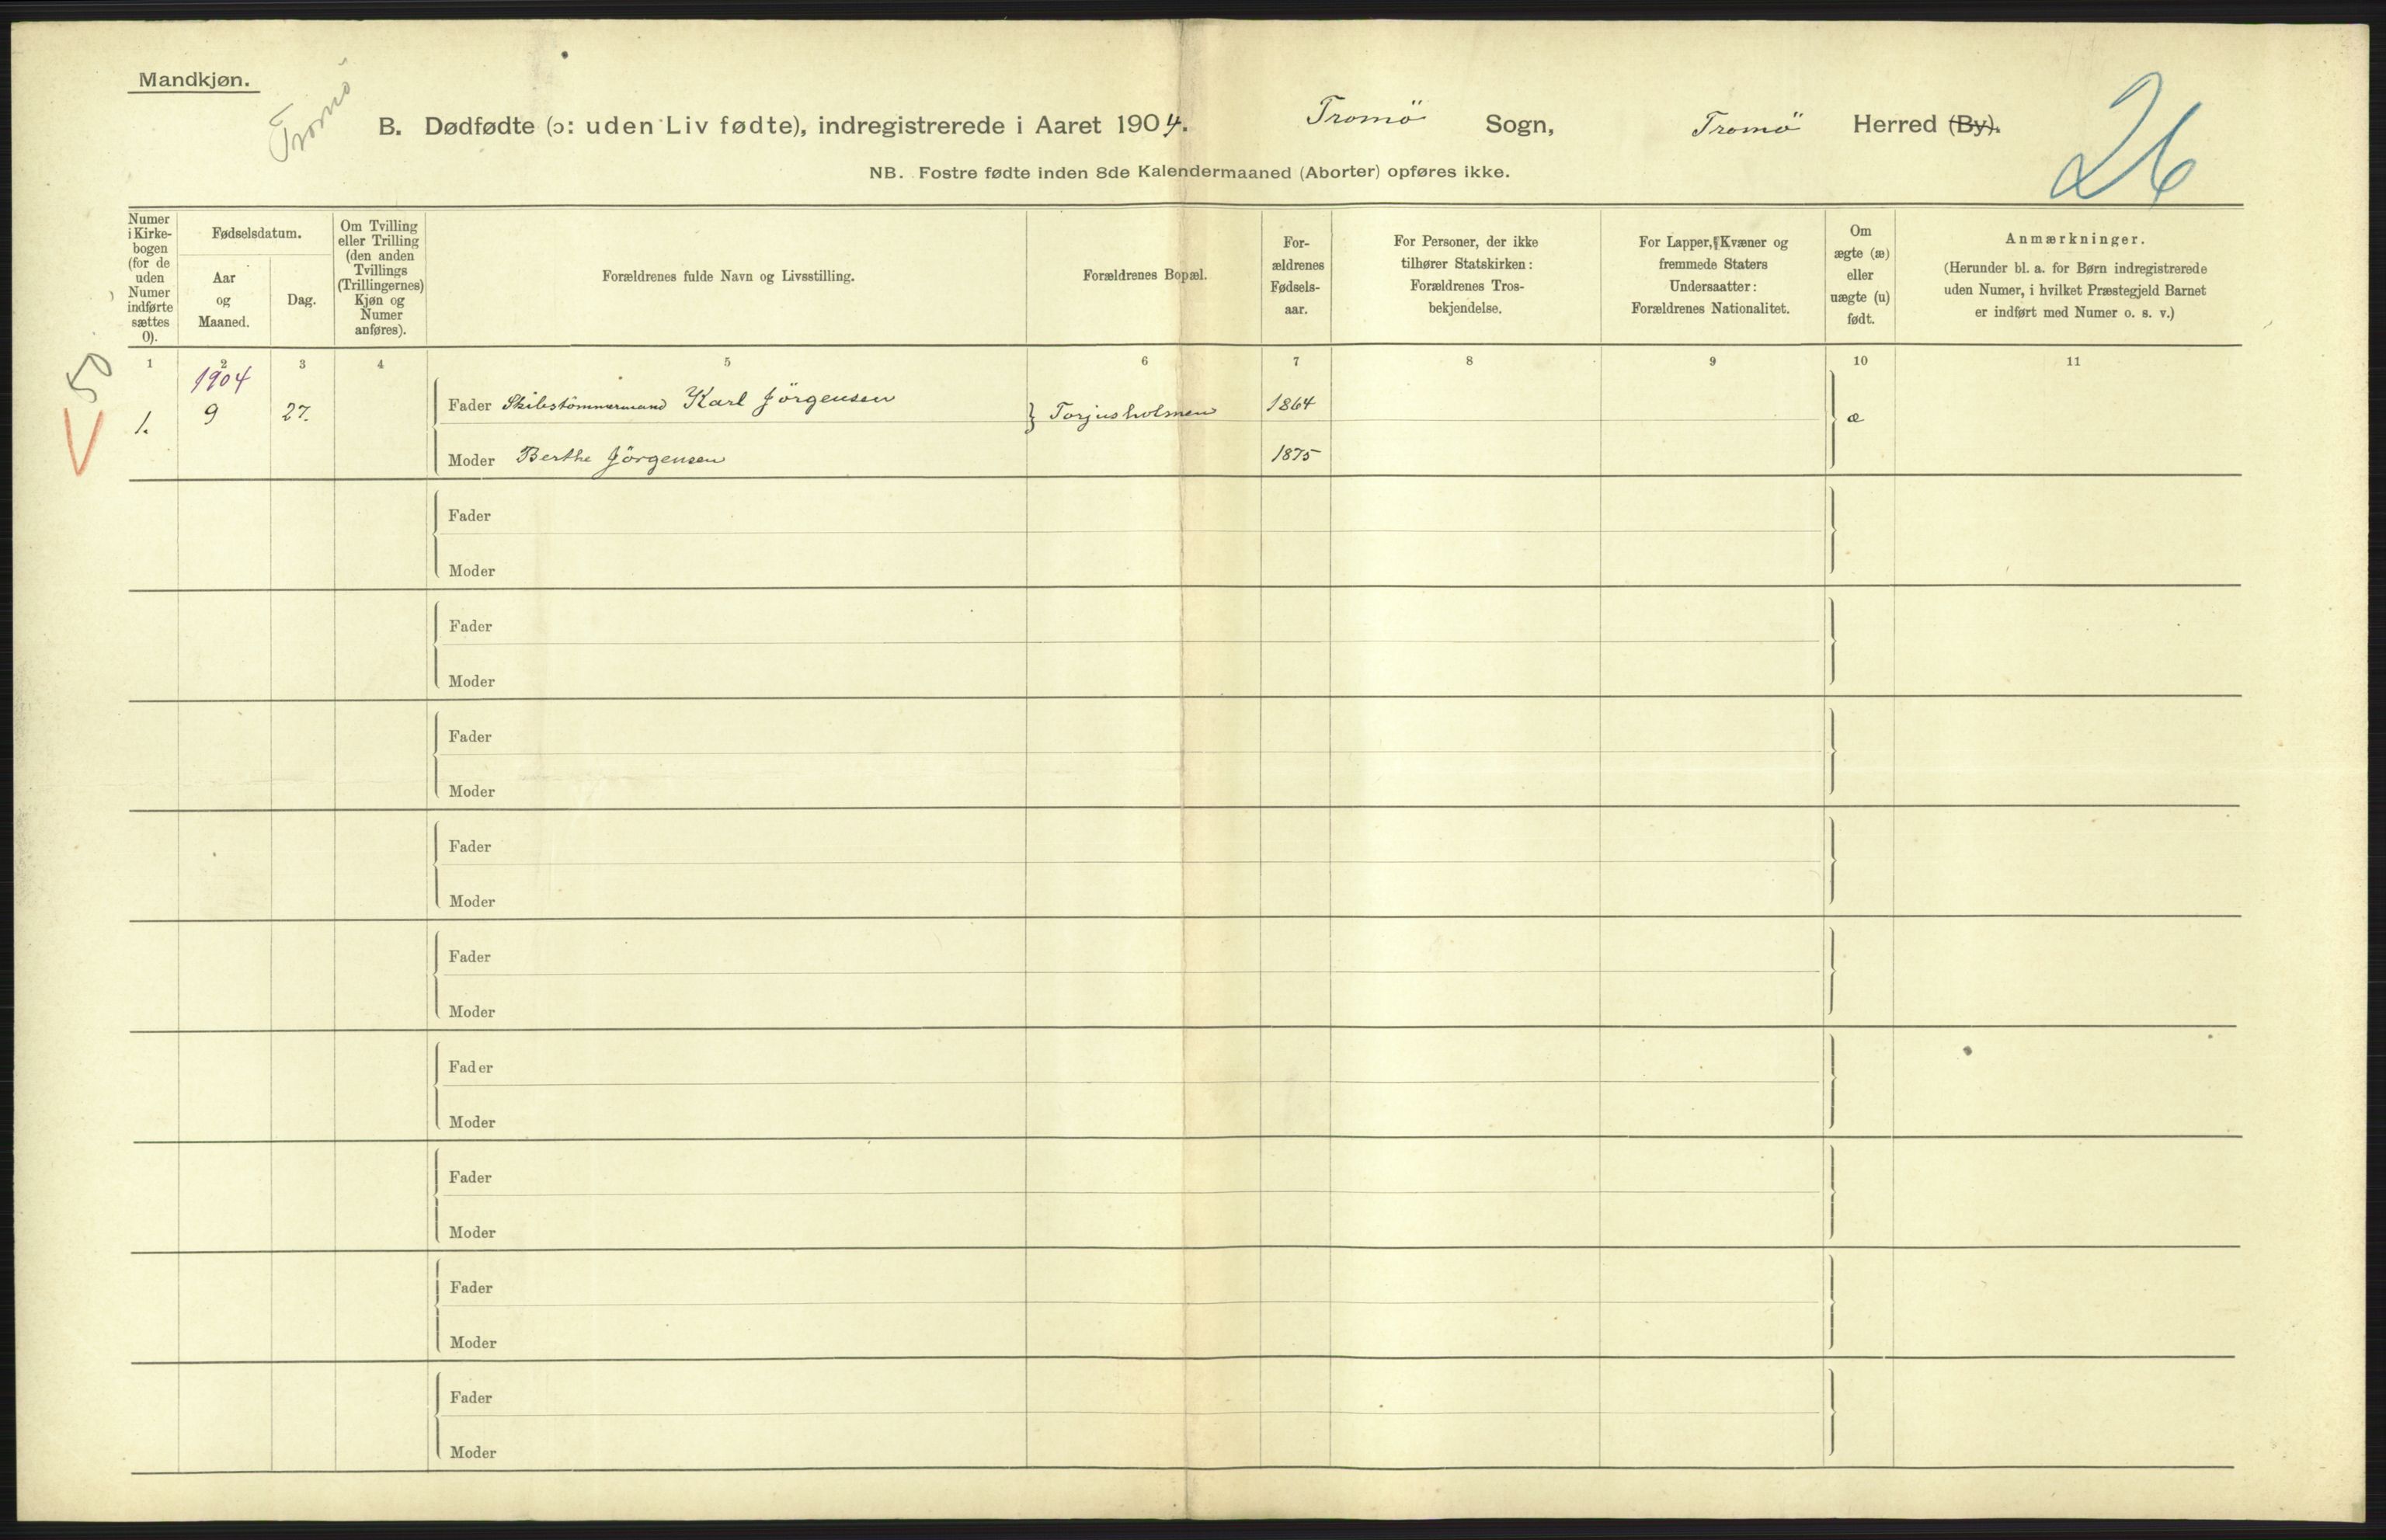 Mandkjøn.
Tromö
B. Dødfødte (ɔ: uden Liv fødte), indregistrerede i Aaret 1904. Tromö Sogn, Tromö Herred (By).
26
NB. Fostre fødte inden 8de Kalendermaaned (Aborter) opføres ikke.
Numer
i Kirke-
bogen
(for de
uden
Numer
indførte
sættes
0).
Fødselsdatum.
Aar
og
Maaned.
Dag.
Om Tvilling
eller Trilling
(den anden
Tvillings
(Trillingernes)
Kjøn og
Numer
anføres).
Forældrenes fulde Navn og Livsstilling.
Forældrenes Bopæl.
For-
ældrenes
Fødsels-
aar.
For Personer, der ikke
tilhører Statskirken:
Forældrenes Tros-
bekjendelse.
For Lapper, Kvæner og
fremmede Staters
Undersaatter:
Forældrenes Nationalitet.
Om
ægte (æ)
eller
uægte (u)
født.
Anmærkninger.
(Herunder bl. a. for Børn indregistrerede
uden Numer, i hvilket Præstegjeld Barnet
er indført med Numer o. s. v.)
1 2 3 4 5 6 7 8 9 10 11
50
1904
1. 9 27. Fader Skibstömmermand Karl Jörgensen Torjusholmen 1864 æ
Moder Berthe Jörgensen 1875
Fader
Moder
Fader
Moder
Fader
Moder
Fader
Moder
Fader
Moder
Fader
Moder
Fader
Moder
Fader
Moder
Fader
Moder